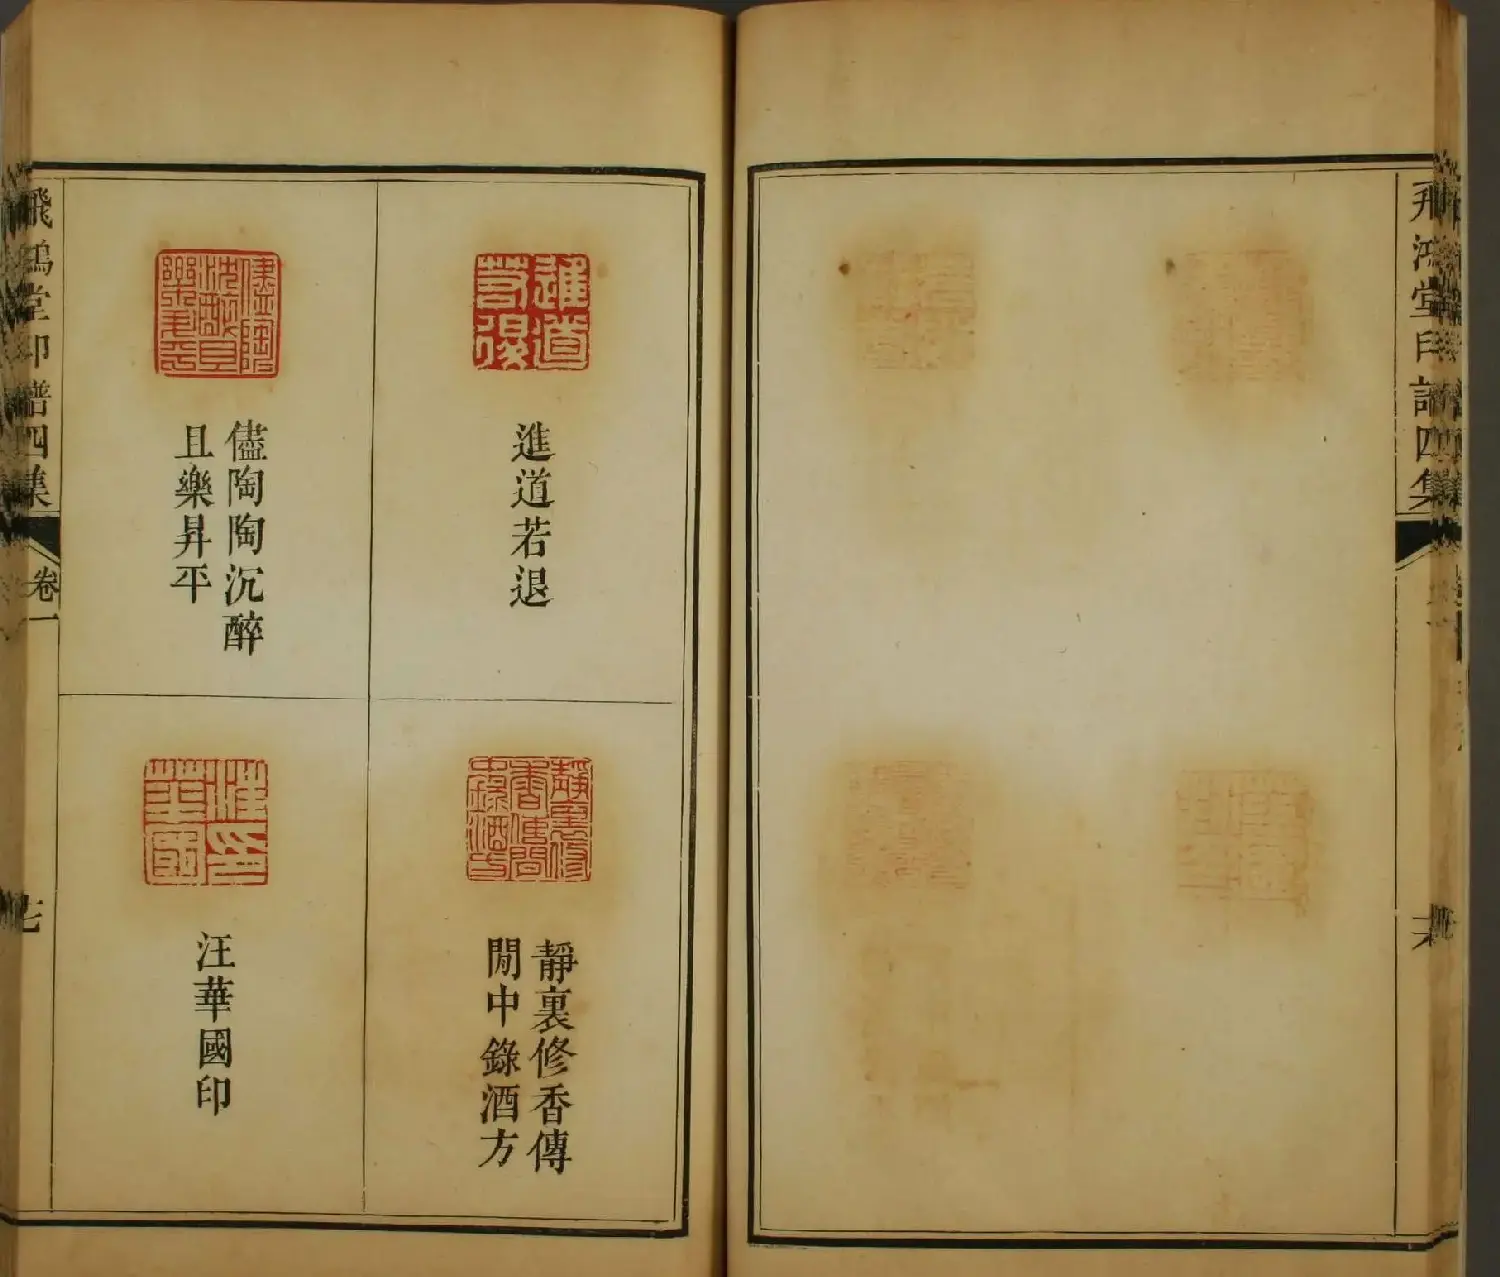 飛鴻堂印譜四集
卷一
進道若退
靜裏修香傳
閒中錄酒方
儘陶陶沉醉
且樂昇平
汪華國印
飛鴻堂印譜四集